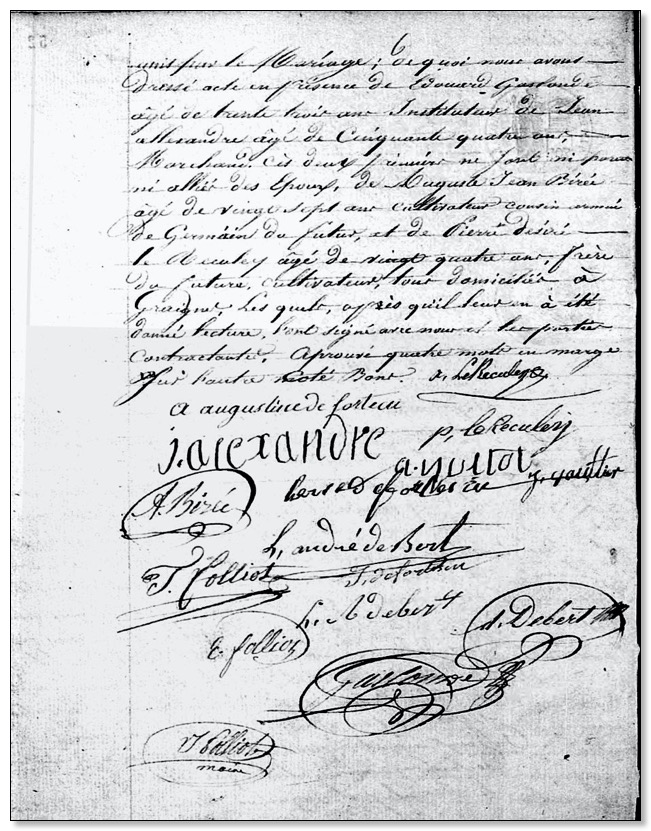 6
unis par le Mariage; de quoi nous avons
dressé acte en présence de Edouard Gaslonde
âgé de trente trois ans Instituteur de Jean
allexandre âgé de Cinquante quatre ans,
Marchand. Ces deux premiers ne sont ni parens
ni alliés des Epoux, de Auguste Jean Bizé
âgé de vingt sept ans cultivateur cousin
de Germain du futur, et de Pierre désiré
le Reculey âgé de vingt quatre ans, frère
du future, cultivateur, tous domiciliés à
Graigne, Les quels, après qu'il leur en à été
donné lecture, l'ont signé avec nous et les parties
Contractantes. Aprouvé quatre mots en marge
Sur l'autre Bons. LeReculey
a augustine de forteau
j. alexandre p, leReculey
A. Bizé
L, andré de Bert
T. Folliot
L. debert
d. Debert
E. folliot
Gaslonde
Folliot
maire